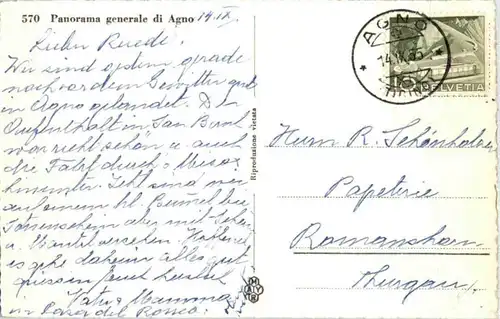 570 Panorama generale di Agno 14.IX.
Lieber Ruedi!
Wir sind gestern grade
noch vor dem Gewitter gut
in Agno gelandet. Der
Aufenthalt in San Bern.
war recht schön u. auch
die Fahrt durch's Misox
hinunter. Jetzt sind wir
auf einem kl. Bummel bei
Sonnenschein aber mit Schirm
u. Mantel versehen. Hoffentl.
es gehe daheim alles gut
grüssen Euch herzlich
Vater u. Mamma
in Casa del Rosso.
Riproduzione vietata
AGNO
14.IX.55
10
HELVETIA
Herrn R. Schönholzer
Papeterie
Romanshorn
Thurgau